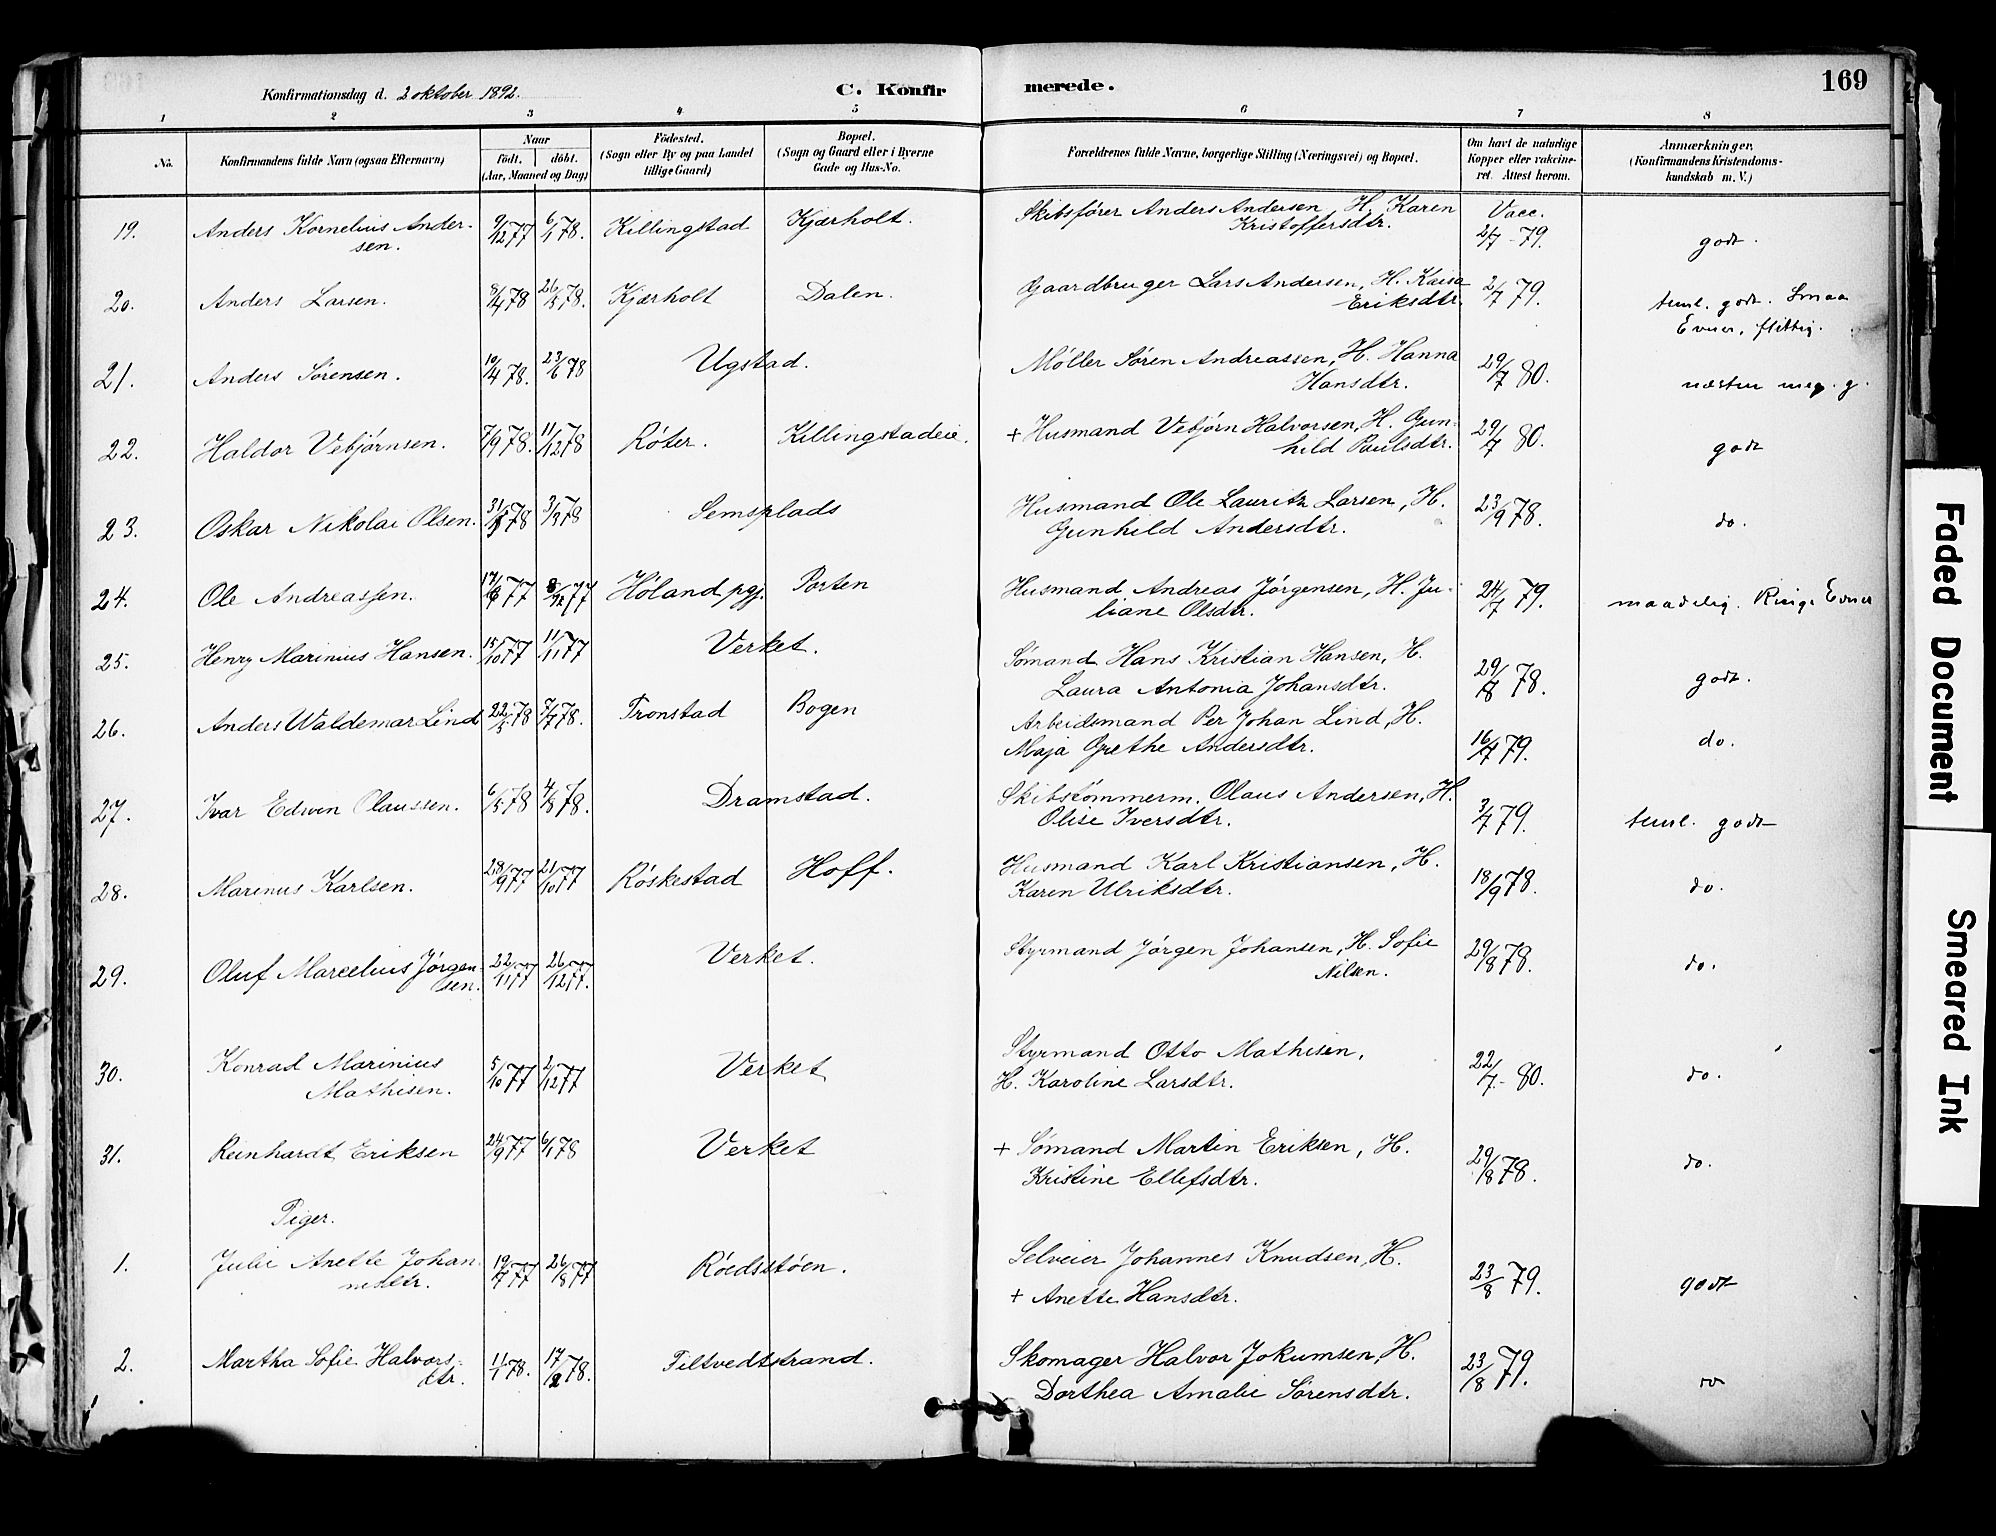 Konfirmationsdag d. 2 oktober 1892.
C. Konfirmerede.
169
1 2 3 4 5 6 7 8
No.
Konfirmandens fulde Navn (ogsaa Efternavn)
Naar
födt. döbt.
(Aar, Maaned og Dag)
Födested.
(Sogn eller By og paa Landet
tillige Gaard)
Bopæl.
(Sogn og Gaard eller i Byerne
Gade og Hus-No.
Forældrenes fulde Navne, borgerlige Stilling (Næringsvei) og Bopæl.
Om havt de naturlige
Kopper eller vakcine-
ret. Attest herom.
Anmærkninger.
(Konfirmandens Kristendoms-
kundskab m. V.)
19. Anders Kornelius Ander- 9/12 77 6/1 78. Killingstad Kjærholt. Skibsfører Anders Andersen, H. Karen Vacc.
sen. Kristoffersdtr. 2/7 - 79. godt.
20. Anders Larsen. 8/4 78 26/5 78. Kjærholt Dalen. Gaardbruger Lars Andersen, H. Kaisa 2/7 79. teml. godt. Smaa
Eriksdtr. Evner, flittig.
21. Anders Sørensen. 10/4 78. 23/6 78 Ugstad. Møller Søren Andreassen, H. Hanna 29/7 80. næsten meg. g.
Hansdtr.
22. Haldor Vebjørnsen. 7/9 78. 11/12 78 Røter. Killingstadeie. + Husmand Vebjørn Halvorsen, H. Gun- 29/7 80. godt
hild Paulsdtr.
23. Oskar Nikolai Olsen. 31/3 78 3/3 78 Semsplads Husmand Ole Lauritz Larsen, H. 23/9 78. do.
Gunhild Andersdtr.
24. Ole Andreassen. 77 77 Høland pgj. Porten Husmand Andreas Jørgensen, H. Ju- 24/7 79. maadelig. Ringe Evner
liane Olsdtr.
25. Henry Marinius Hansen. 15/10 77 11/11 77 Verket. Sømand Hans Kristian Hansen, H.
Laura Antonia Johansdtr. 29/8 78. godt.
26. Anders Waldemar Lind 22/5 78 5/7 78. Tronstad Bogen Arbeidsmand Per Johan Lind, H.
Maja Grethe Andersdtr. 16/7 79. do.
27. Ivar Edwin Olaussen. 6/5 78 4/8 78. Dramstad. Skibstømmerm. Olaus Andersen, H.
Olise Iversdtr. 3/7 79. teml. godt
28. Marinus Karlsen. 28/9 77 21/10 77 Røskestad Hoff. Husmand Karl Kristiansen, H.
Karen Ulriksdtr. 18/9 78. do.
29. Oluf Marcelius Jørgen- 22/11 77 26/12 77. Verket. Styrmand Jørgen Johansen, H. Sofie 29/8 78. do.
sen. Nilsen.
30. Konrad Marinius 5/10 77 2/12 77 Verket Styrmand Otto Mathisen,
Mathisen. H. Karoline Larsdtr. 22/7 - 80. do.
31. Reinhardt Eriksen 24/9 77 6/1 78 Verket + Sømand Martin Eriksen, H.
Kristine Ellefsdtr. 29/8 78. do.
Piger.
1. Julie Anette Johan- 19/7 77 26/8 77 Røedsstøen. Selveier Johannes Knudsen, H.
nesdtr. + Anette Hansdtr. 23/8 79. godt
2. Martha Sofie Halvors- 11/1 78. 17/2 78. Tiltvedtstrand. Skomager Halvor Jokumsen, H.
dtr. Dorthea Amalie Sørensdtr. 23/8 79. do
Faded Document
Smeared Ink